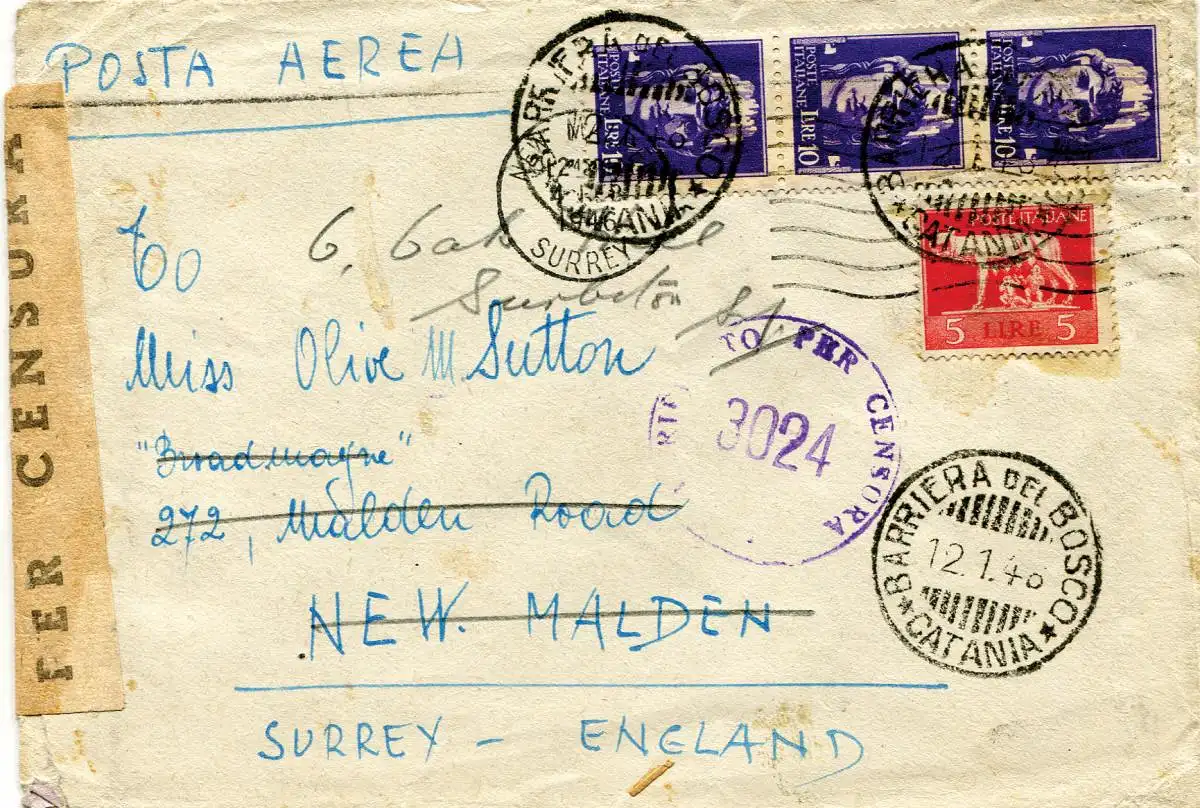 POSTA AEREA
POSTE ITALIANE LIRE 10
POSTE ITALIANE LIRE 10
POSTE ITALIANE LIRE 10
BARRIERA DEL BOSCO
CATANIA
SURREY
BARRIERA
CATANIA
POSTE ITALIANE
5 LIRE 5
PER CENSURA
To
6, Oak
Surbiton
Miss Olive M. Sutton
TO PER CENSORA
3024
"Broadmayne"
272, Malden Road
NEW. MALDEN
BARRIERA DEL BOSCO
12.1.46
CATANIA
SURREY - ENGLAND